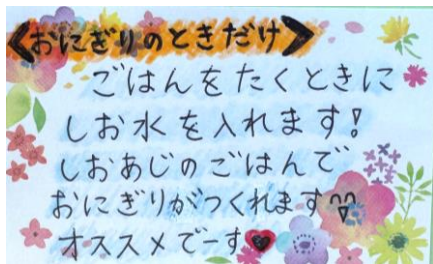 《おにぎりのときだけ》
ごはんをたくときに
しお水を入れます!
しおあじのごはんで
おにぎりがつくれます
オススメでーす